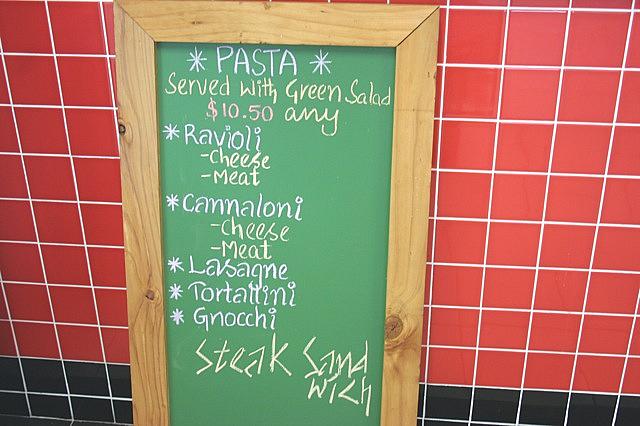 * PASTA *
Served with Green Salad
$10.50 any
* Ravioli
-Cheese
-Meat
* Cannaloni
-Cheese
-Meat
* Lasagne
* Tortattini
* Gnocchi
Steak Sand
wich